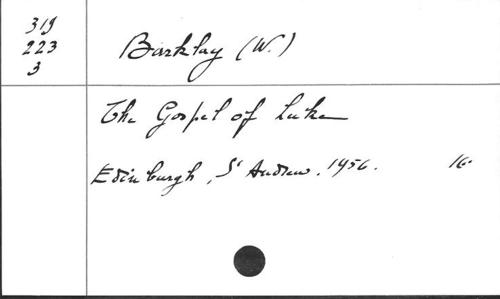 319
223
3
Barklay (W.)
The Gospel of Luke
Edinburgh, St Andrew. 1956. 16.